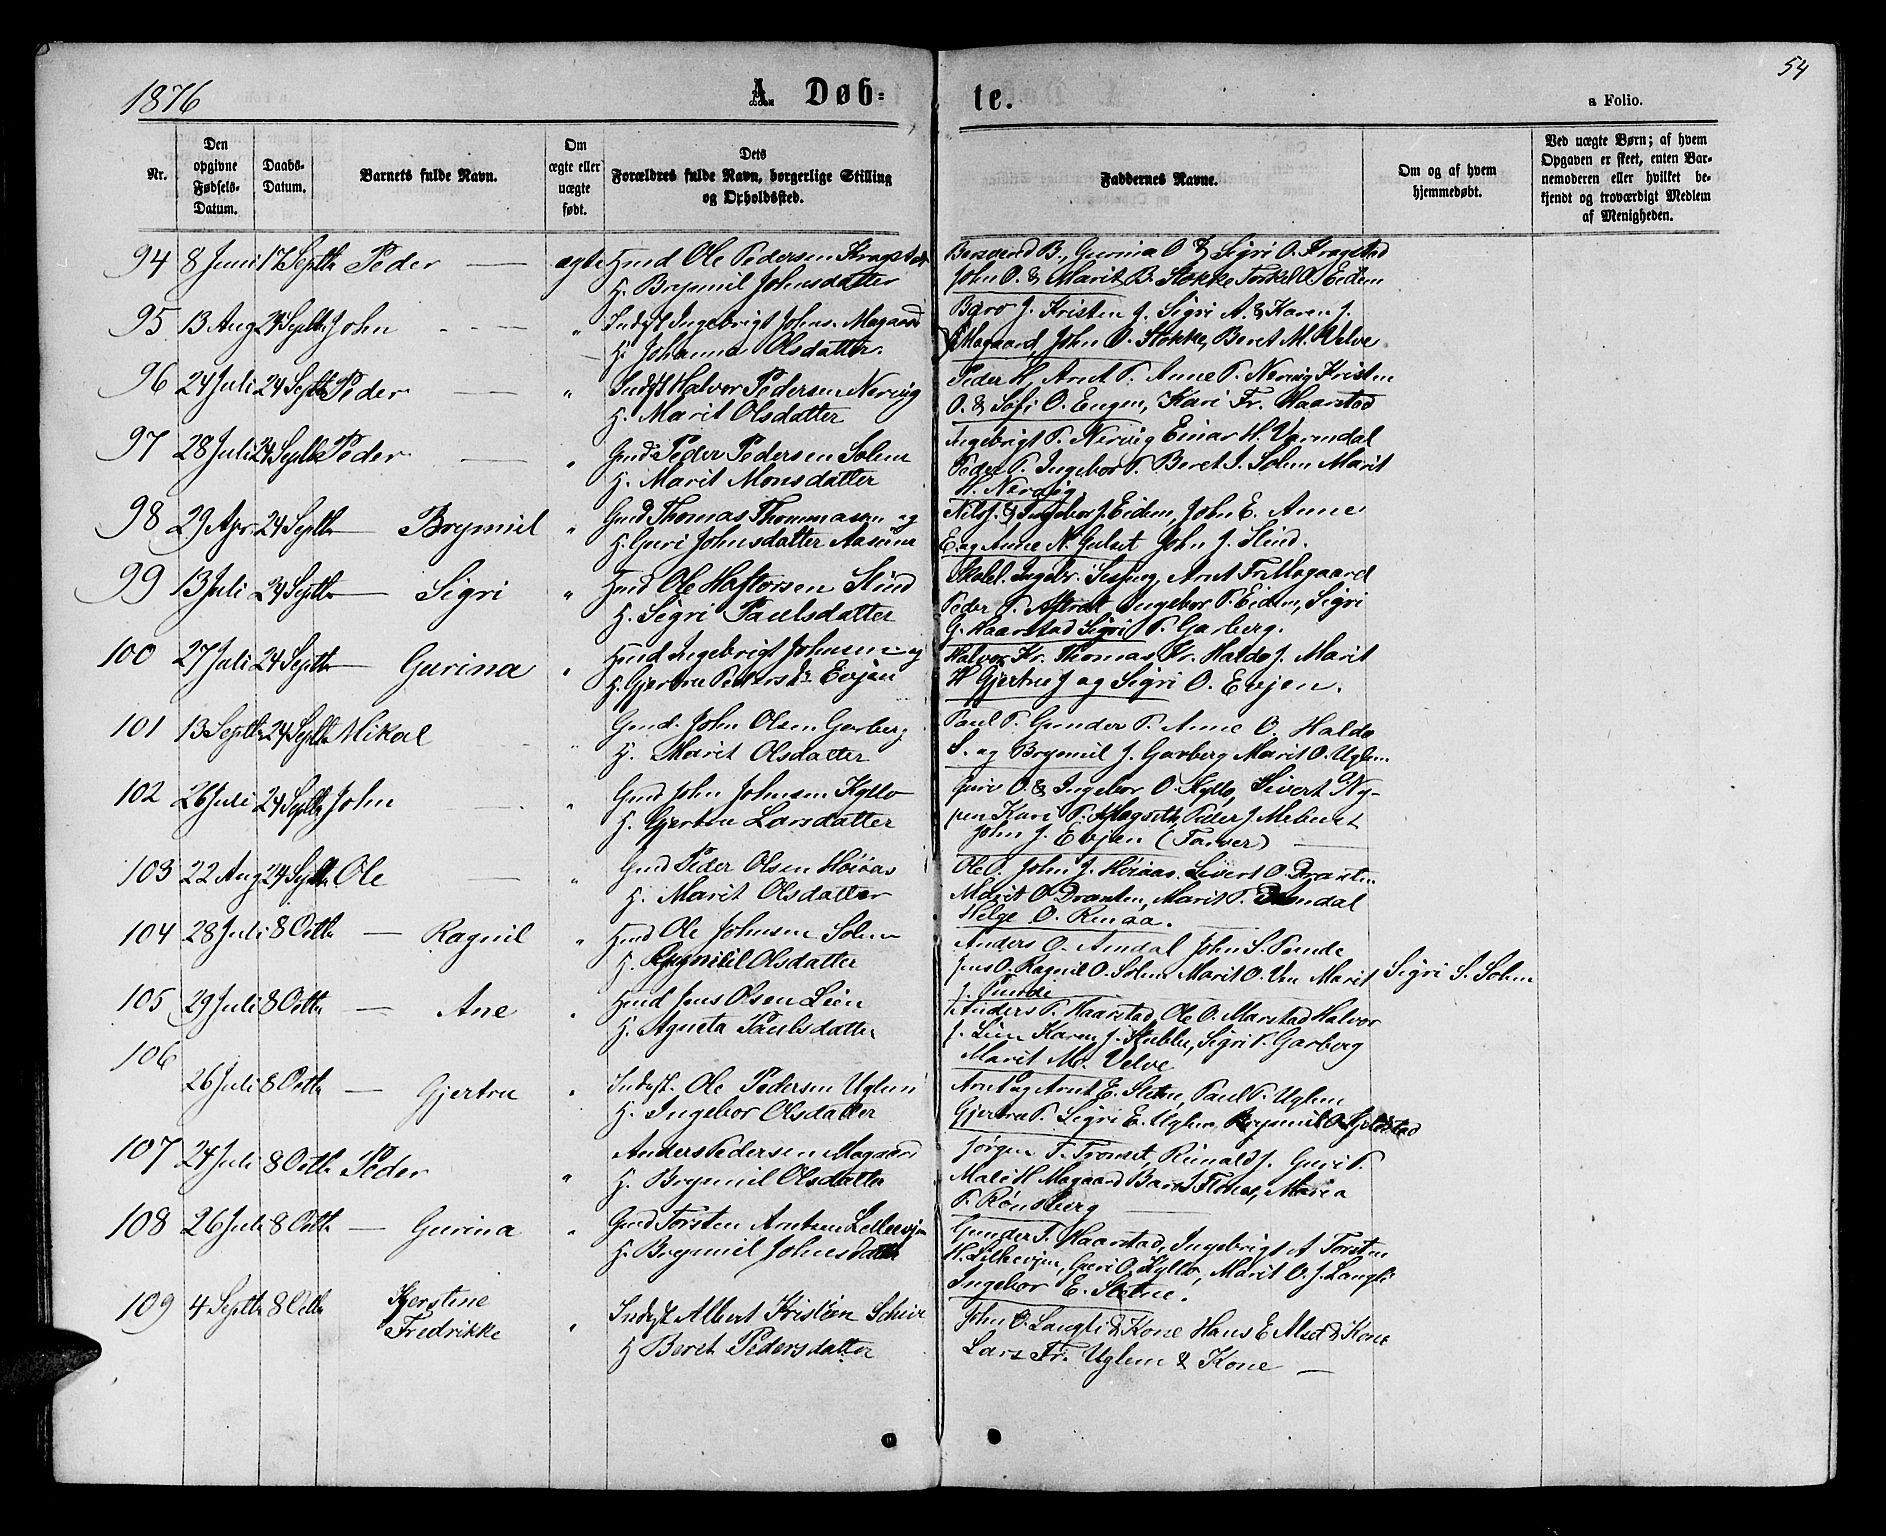 1876
A. Døb=
te.
54
a Folio.
Nr.
Den opgivne Fødsels-Datum.
Daabs-Datum.
Barnets fulde Navn.
Om ægte eller uægte født.
Dets Forældres fulde Navn, borgerlige Stilling og Opholdssted.
Faddernes Navne.
Om og af hvem hjemmedøbt.
Ved uægte Børn; af hvem Opgaven er skeet, enten Barnemoderen eller hvilket bekjendt og troværdigt Medlem af Menigheden.
94 8 Juni 17 Septbr Peder — ægte Hmd Ole Pedersen Kragstad
H. Brynnil Johnsdatter
Berdoend B., Gurina O & Sigri O. Kragstad
John O. & Marit B. Stokke Torkel O Eidem
95 13 Aug 24 Septbr John - - - " Indst Ingebrigt Johns. Mogaard
H. Johanna Olsdatter.
Baro J. Kristen J. Sigri A. & Karen J.
Mogaard, John O. Stokke, Beret M. Velve
96 24 Juli 24 Septbr Peder — " Indst Halvor Pedersen Nervig
H. Marit Olsdatter
Peder H, Arnt P. Anne P. Nervig Kristen
O. & Sofi O. Engen, Kari Fr. Haarstad
97 28 Juli 24 Septbr Peder — " Gmd Peder Pedersen Solem
H. Marit Monsdatter
Ingebrigt P. Nervig Einar H. Varmdal
Peder P. Ingebor P. Beret J. Solem Marit
H. Nervig.
98 29 Apr. 24 Septbr — Brynnil " Gmd Thomas Thommasen og
H. Guri Johnsdatter Aasmo
Nils J. & Ingebor J. Eidem, John E. Anne
E. og Anne N. Gulset John J. Slind.
99 13 Juli 24 Septbr — Sigri " Hmd Ole Haftorsen Slind
H. Sigri Paulsdatter
Skolel. Ingebr. Sesseng, Arnt Fr Mogaard
Peder P. Aftret Ingebor P. Eidem, Sigri
G. Haarstad Sigri P. Garberg.
100 27 Juli 24 Septbr — Gurina " Hmd Ingebrigt Johnsen og
H. Gjertru Pedersdr Evjen
Halvor Kr. Thomas Kr. Haldo J. Marit
H Gjertru J og Sigri O. Evjen.
101 13 Septbr 24 Septbr Mikal " Gmd. John Olsen Garberg
H. Marit Olsdatter
Paul P. Gunder P. Anne O. Haldo
S. og Brynnil J. Garberg Marit O. Uglem
102 26 Juli 24 Septbr John — " Gmd John Johnsen Kyllo
H. Gjertru Larsdatter
Guri O. & Ingebor O. Kyllo, Sivert Ny-
pen Kari P. Mogseth, Peder J. Mebust
John J. Evjen (Farver) —
103 22 Aug 24 Septbr Ole — " Gmd Peder Olsen Høiaas
H. Marit Olsdatter
Ole O. John J. Høiaas. Sivert O. Draxten
Marit O. Draxten, Marit P. Dændal
Helge O. Rinaa.
104 28 Juli 8 Octbr — Ragnil " Hmd Ole Johnsen Solem
H. Gunnild Olsdatter
Anders O. Amdal John S. Punde
Jens O. Ragnil O. Solem Marit O. Um Marit Sigri S. Solem
J. Punde
105 29 Juli 8 Octbr — Ane " Hmd Jens Olsen Lien
H. Agneta Paulsdatter
Anders P. Haarstad, Ole O. Marstad Halvor
J. Lien Karen J. Stubbe, Sigri P. Garberg
Marit M. Velve
106 26 Juli 8 Octbr — Gjertru " Indst. Ole Pedersen Uglem
H. Ingebor Olsdatter
Arnt og Arnt E. Sletne, Paul P. Uglem
Gjertru P. Sigri E. Uglem, Brynnil O. Gjelstad
107 24 Juli 8 Octbr Peder " Anders Pedersen Mogaard
H. Brynnil Olsdatter
Jørgen F. Tronset, Rinald J. Guri P.
Mali H Mogaard Baro J Flønes, Maria
P. Rønsberg —
108 26 Juli 8 Octbr — Gurina " Gmd Torsten Arntsen Lilleevjen
H. Brynnil Johnsdatter
Gunder T. Haarstad, Ingebrigt A Torsten
H. Lilleevjen, Guri O. Kyllo, Marit O. J. Langli
Ingebor E. Sletne.
109 4 Septbr 8 Octbr Kjerstine
Fredrikke " Indst Albert Kristian Scheie
H Beret Pedersdatter
John O. Langli & Kone Hans E Alset & Kone
Lars Fr. Uglem & Kone —